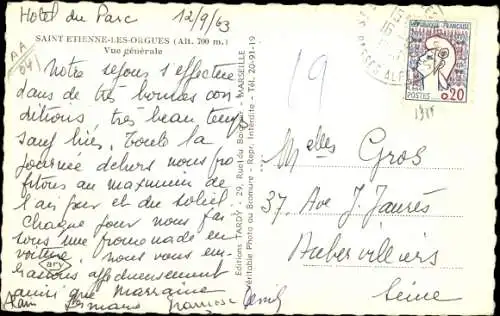 Hotel du Parc 12/9/63
SAINT-ETIENNE-LES-ORGUES (Alt. 700 m.)
Vue générale
AA
04
Notre séjour s'effectue
dans de très bonnes con
ditions, très beau temps
sauf hier. Toute la
journée dehors nous pro
fitons au maximum de
l'air pur et du soleil
chaque jour nous fai
sons une promenade en
voiture nous vous em
brassons affectueusement
ainsi que Marraine
Alain Germaine
Editions TARDY - 29, Rue du Baignoir - MARSEILLE
Véritable Photo au Bromure - Repr. Interdite - Tél. 20-91-19
19
RÉPUBLIQUE FRANÇAISE
POSTES 0,20
BASSES ALPES
Melles Gros
37 Ave J. Jaurès
Aubervilliers
Seine